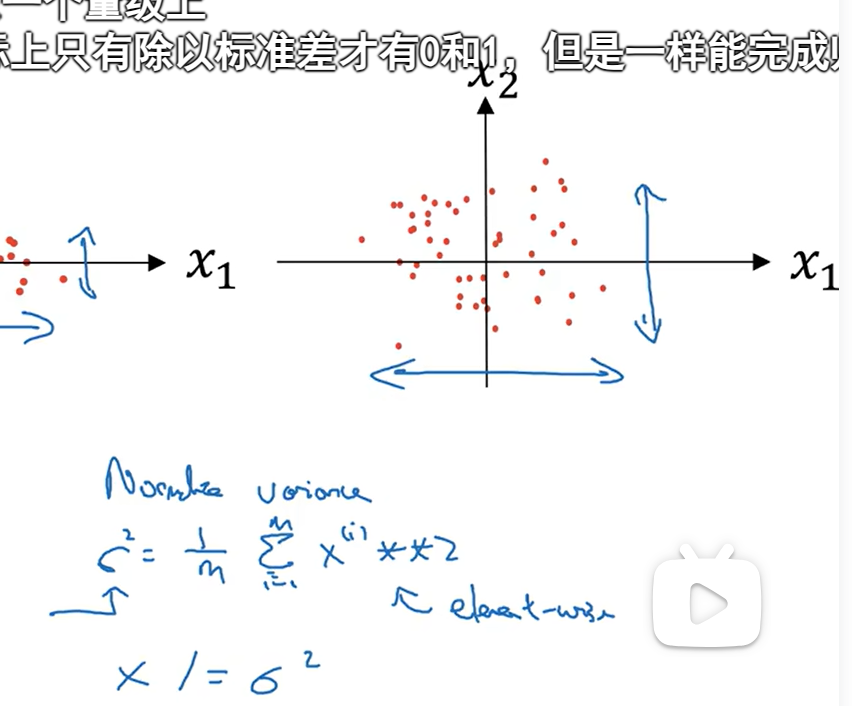 一个量级上
际上只有除以标准差才有0和1，但是一样能完成归
x₂
x₁
x₁
Normalize variance
σ² = 1/m Σ_{i=1}^{m} x^{(i)} ** 2
element-wise
x /= σ²